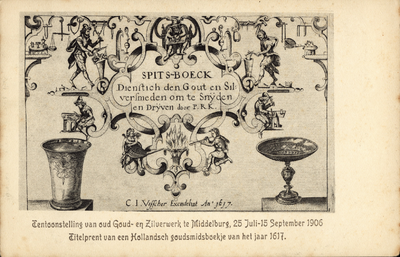 SPITS-BOECK
Dienstich den Gout en Sil
versmeden om te Snyden
en Dryven door P.R.K.
C I Visscher Excudebat An° 1617.
Tentoonstelling van oud Goud- en Zilverwerk te Middelburg, 25 Juli-15 September 1906
Titelprent van een Hollandsch goudsmidsboekje van het jaar 1617.